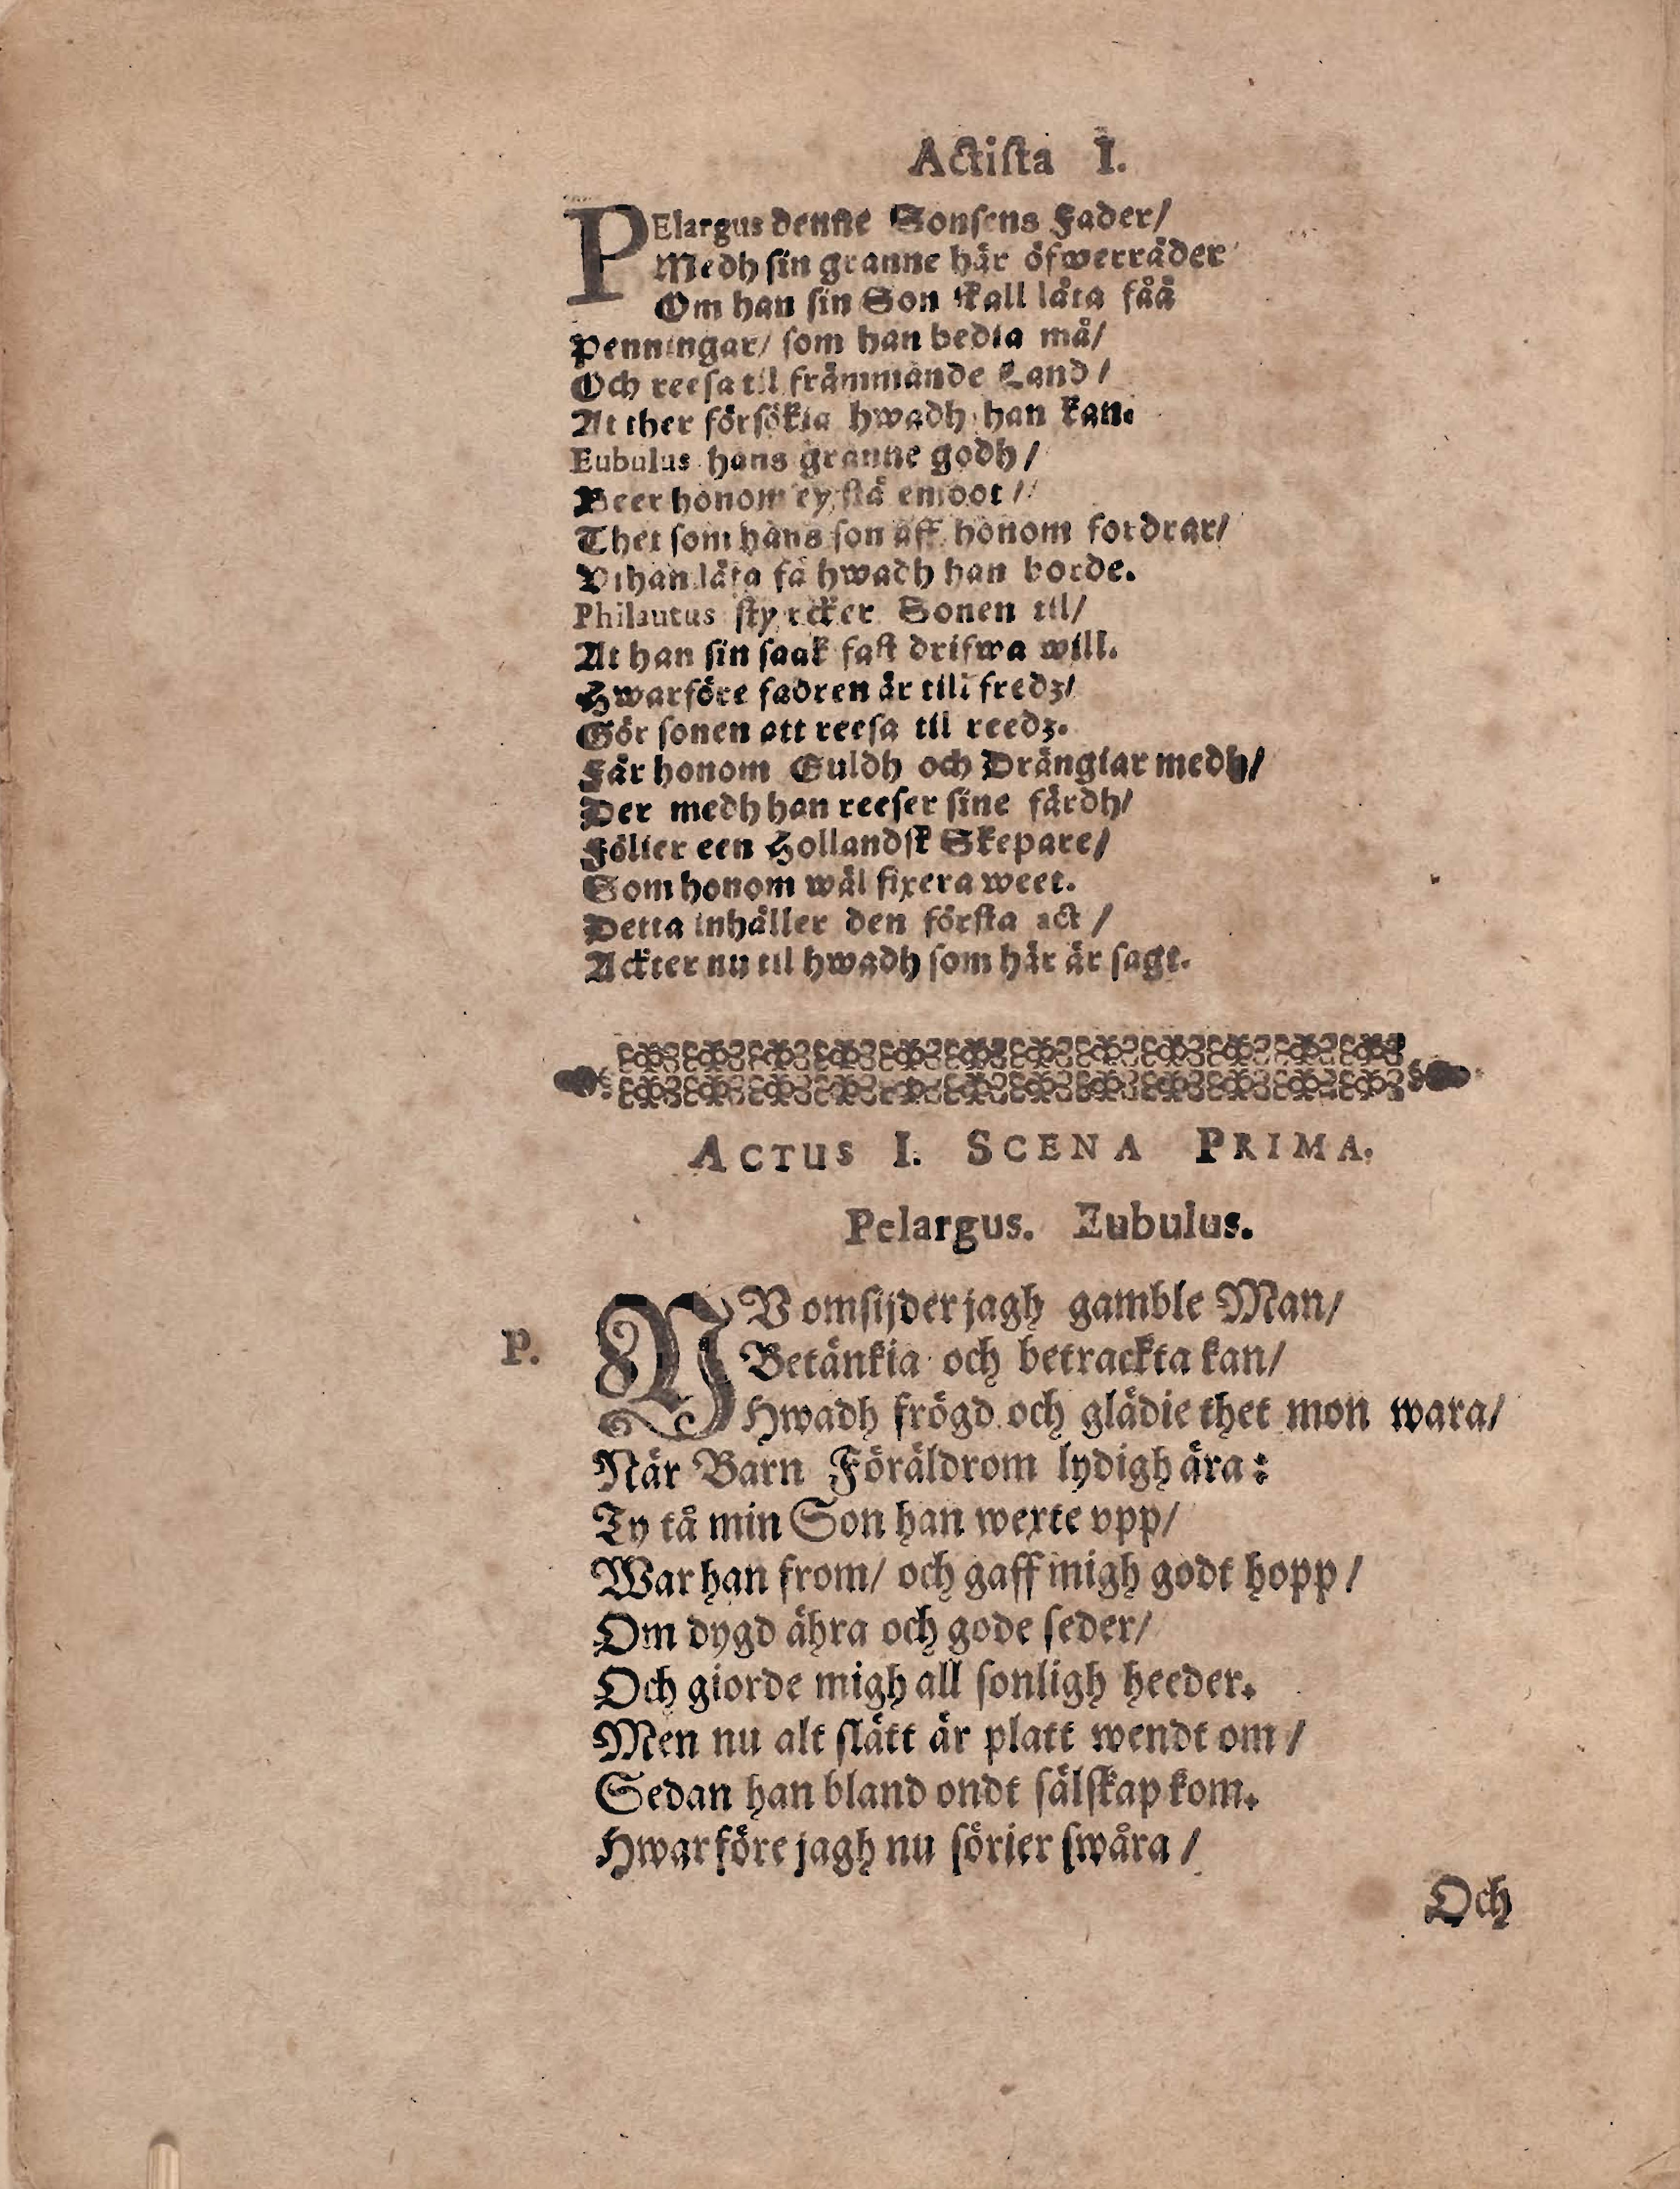 Actiſta I.
PElargus denne Sonſens Fader/
Medh ſin granne här öfwerråder
Om han ſin Son ſkall låta fåå
Penningar/ ſom han bedia må/
Och reeſa til främmande Land/
At ther förſökia hwadh han kan.
Eubulus hans granne godh/
Beer honom ey ſtå emoot/
Thet ſom hans ſon aff honom fordrar/
Vthan låta få hwadh han borde.
Philautus ſtyrcker Sonen til/
At han ſin ſaak faſt drifwa will.
Hwarföre fadren är till fredz/
Gör ſonen att reeſa til reedz.
Får honom Guldh och Drängiar medh/
Der medh han reeſer ſine färdh/
Fölier een Hollandſk Skepare/
Som honom wäl fixera weet.
Detta inhåller den förſta act/
Ackter nu til hwadh ſom här är ſagt.
ACTUS I. SCENA PRIMA.
Pelargus. Eubulus.
P. NV omſijder jagh gamble Man/
Betänkia och betrackta kan/
Hwadh frögd och glädie thet mon wara/
När Barn Föräldrom lydigh ära:
Ty tå min Son han wexte vpp/
War han from/ och gaff migh godt hopp/
Om dygd ähra och gode ſeder/
Och giorde migh all ſonligh heeder.
Men nu alt ſlätt är platt wendt om/
Sedan han bland ondt ſälſkap kom.
Hwarföre jagh nu ſörier ſwåra/
Och